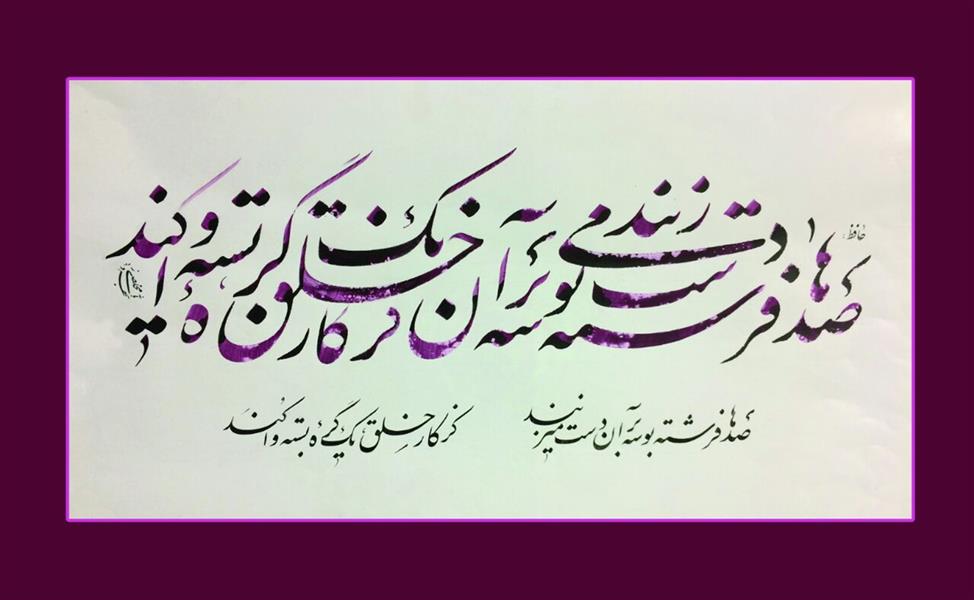 حافظ:
صدها فرشته بوسه بر آن دست می‌زنند کز کار خلق یک گره بسته وا کند
صدها فرشته بوسه بر آن دست میزنند کز کار خلق یک گره بسته وا کند